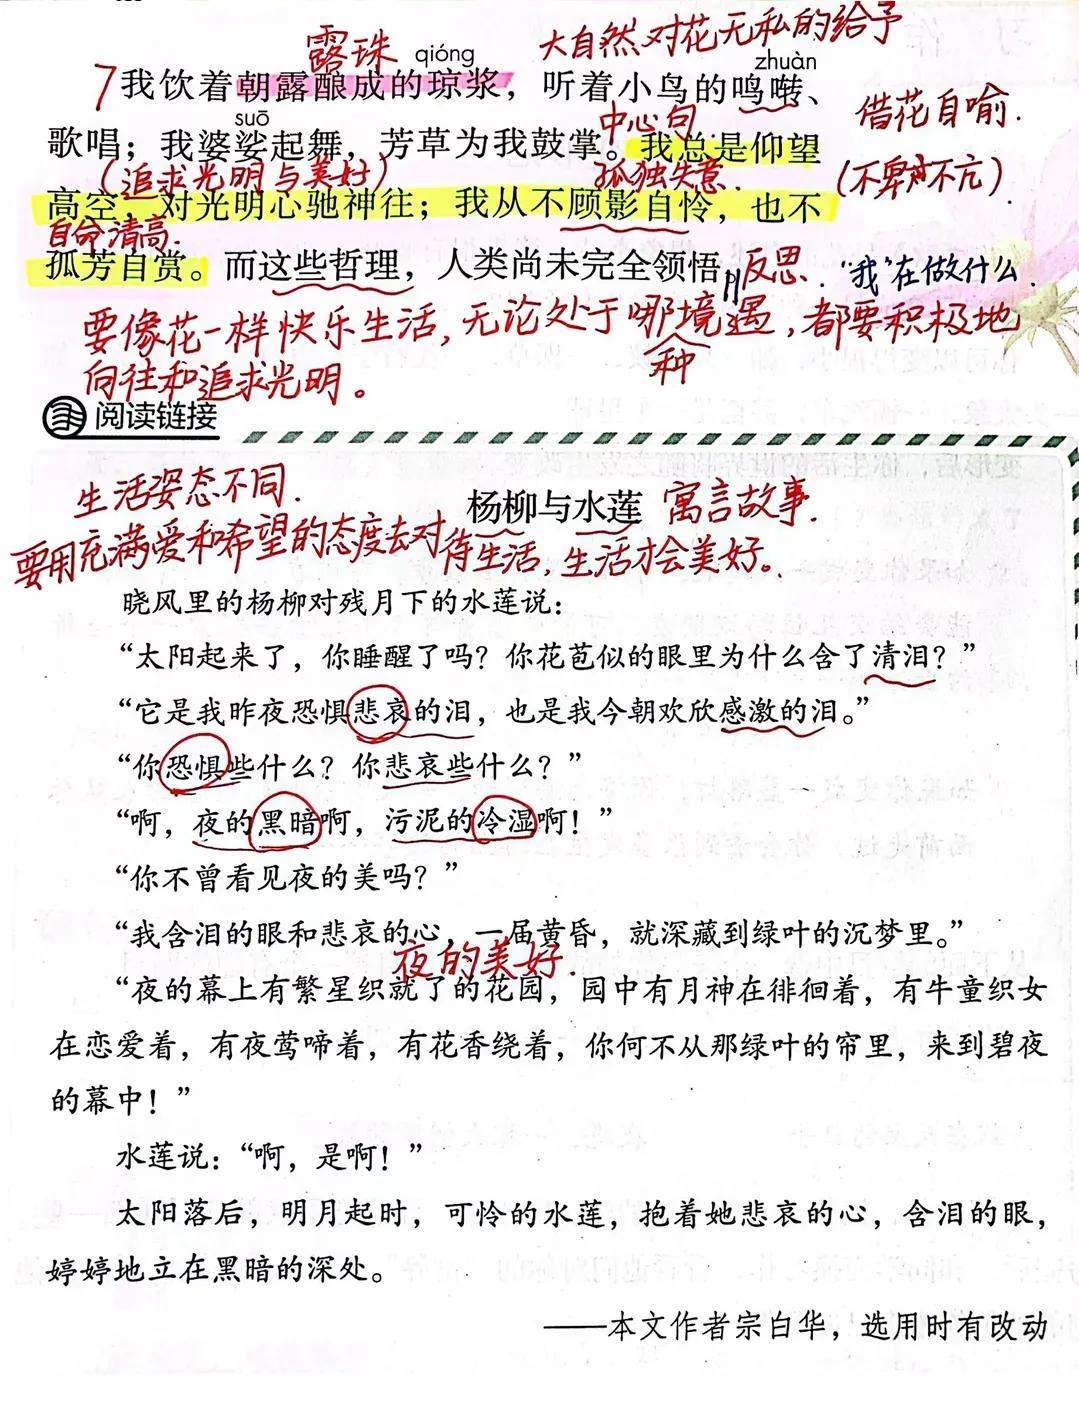 露珠 qióng 大自然对花无私的给予
zhuàn
7我饮着朝露酿成的琼浆，听着小鸟的鸣啭、
借花自喻.
suō 中心句.
歌唱；我婆娑起舞，芳草为我鼓掌。我总是仰望
(追求光明与美好) 孤独失意. (不卑不亢)
高空，对光明心驰神往；我从不顾影自怜，也不
自命清高.
孤芳自赏。而这些哲理，人类尚未完全领悟。
反思. “我”在做什么.
要像花一样快乐生活,无论处于哪种境遇,都要积极地
向往和追求光明。
阅读链接
生活姿态不同.
杨柳与水莲 寓言故事.
要用充满爱和希望的态度去对待生活,生活才会美好。
晓风里的杨柳对残月下的水莲说：
“太阳起来了，你睡醒了吗？你花苞似的眼里为什么含了清泪？”
“它是我昨夜恐惧悲哀的泪，也是我今朝欢欣感激的泪。”
“你恐惧些什么？你悲哀些什么？”
“啊，夜的黑暗啊，污泥的冷湿啊！”
“你不曾看见夜的美吗？”
“我含泪的眼和悲哀的心，一届黄昏，就深藏到绿叶的沉梦里。”
夜的美好.
“夜的幕上有繁星织就了的花园，园中有月神在徘徊着，有牛童织女
在恋爱着，有夜莺啼着，有花香绕着，你何不从那绿叶的帘里，来到碧夜
的幕中！”
水莲说：“啊，是啊！”
太阳落后，明月起时，可怜的水莲，抱着她悲哀的心，含泪的眼，
婷婷地立在黑暗的深处。
——本文作者宗白华，选用时有改动